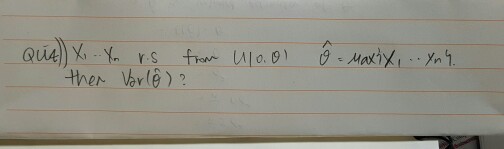 QUIZ)) X₁ .. Xn r.s from U(0,θ) θ̂ = Max{X₁ .. Xn}.
then Var(θ̂) ?